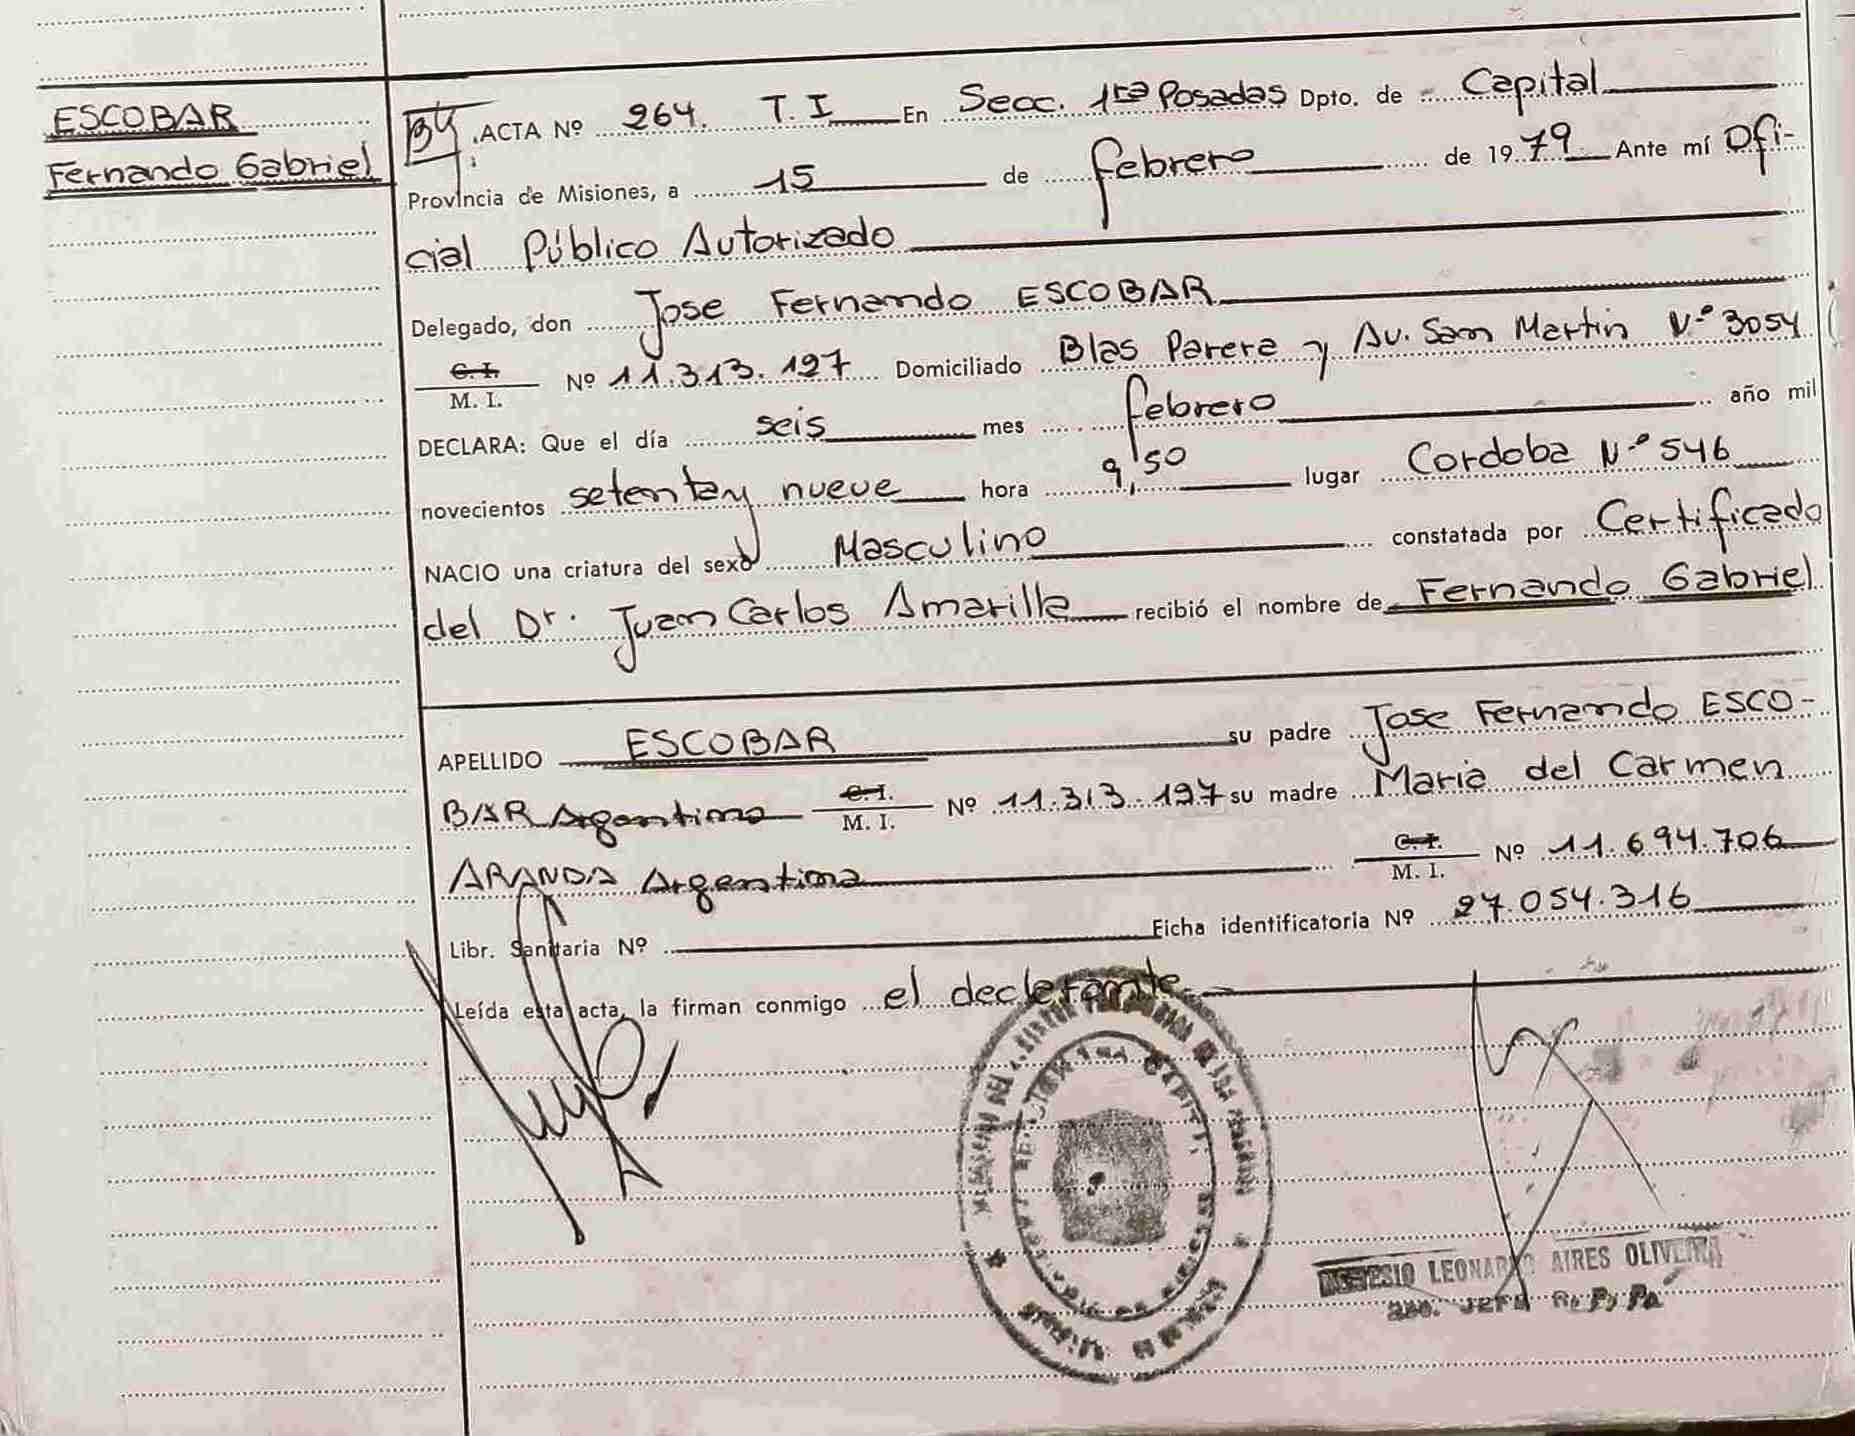 ESCOBAR
Fernando Gabriel
ACTA Nº 264. T.I En Secc. 1ra Posadas Dpto. de Capital
Provincia de Misiones, a 15 de febrero de 1979 Ante mí Ofi-
cial Público Autorizado
Delegado, don Jose Fernando ESCOBAR
C. I.
M. I. Nº 11.313.197 Domiciliado Blas Parera y Av. San Martin Nº 3054
DECLARA: Que el día seis mes febrero año mil
novecientos setenta y nueve hora 9,50 lugar Cordoba Nº 546
NACIO una criatura del sexo Masculino constatada por Certificado
del Dr. Juan Carlos Amarilla recibió el nombre de Fernando Gabriel
APELLIDO ESCOBAR su padre Jose Fernando ESCO-
BAR Argentino C. I. M. I. Nº 11.313.197 su madre Maria del Carmen
ARANDA Argentina C. I. M. I. Nº 11.694.706
Libr. Sanitaria Nº Ficha identificatoria Nº 27.054.316
Leída esta acta, la firman conmigo el declarante
LEONARDO AIRES OLIVEIRA
2do. JEFE